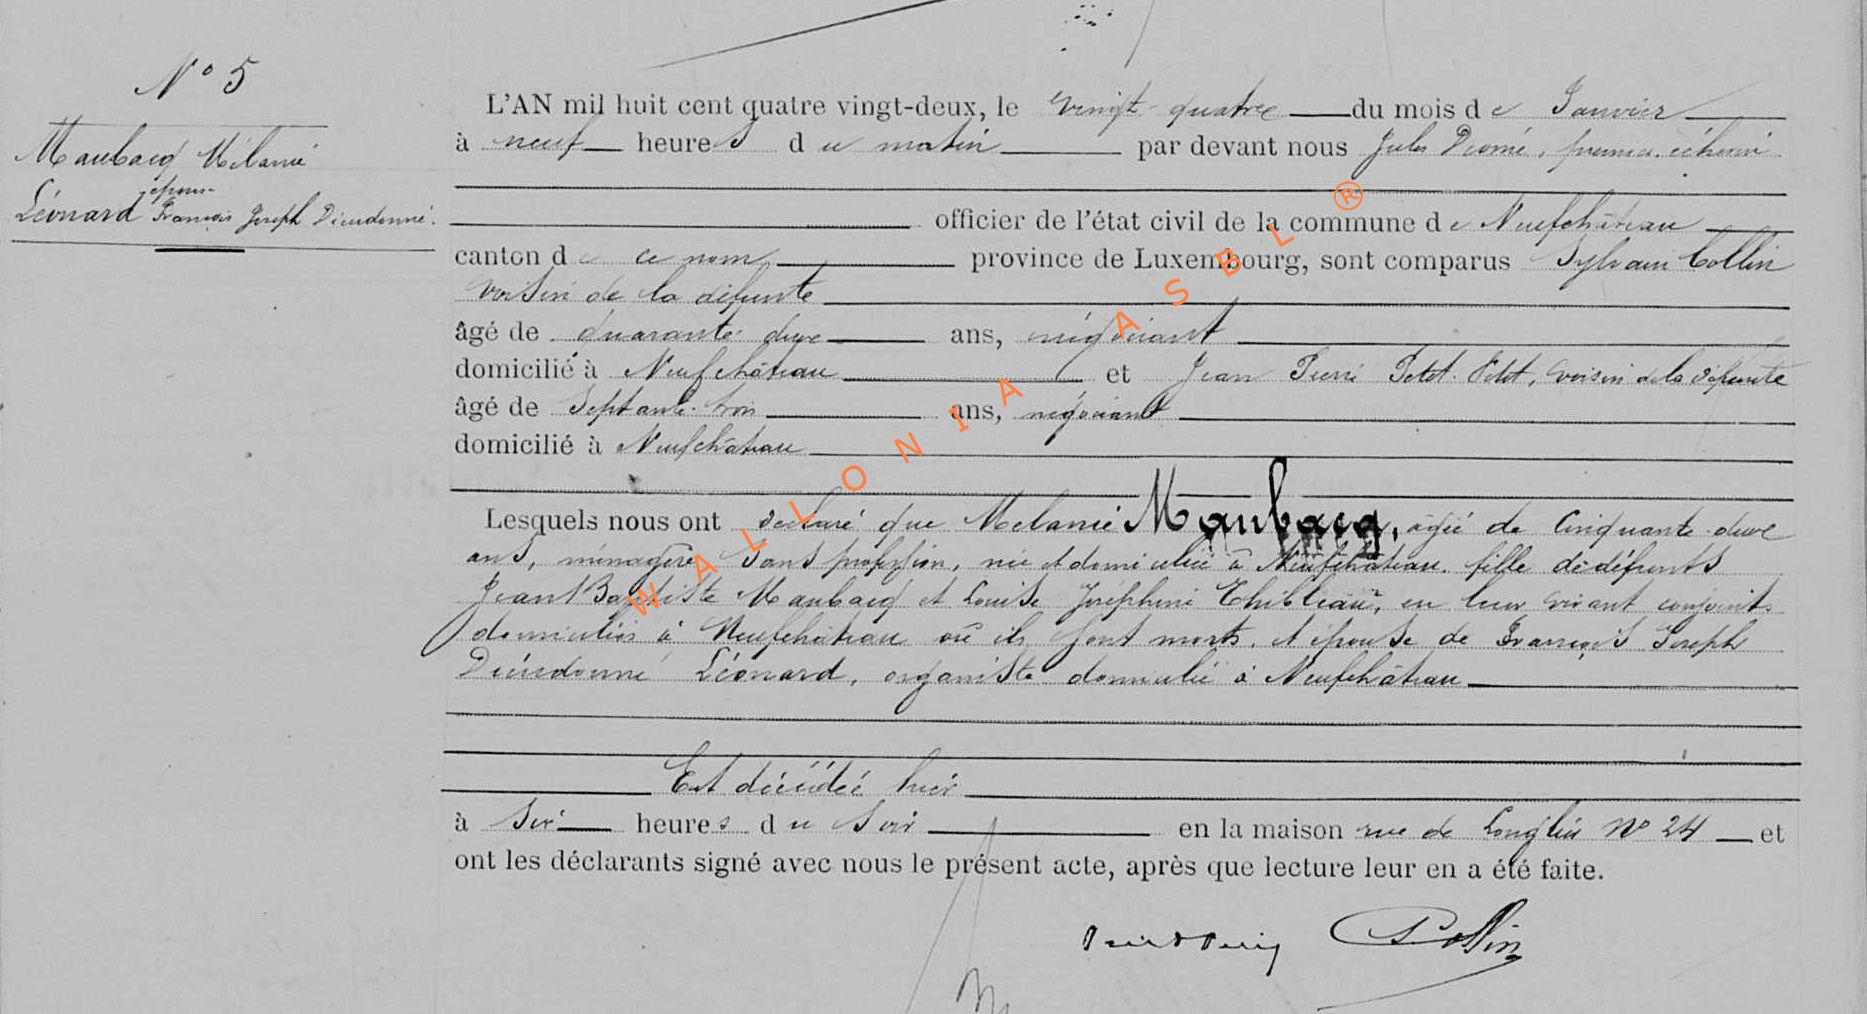 N° 5
Maubacq Mélanie
épouse
Léonard François Joseph Dieudonné.
L'AN mil huit cent quatre vingt-deux, le vingt-quatre du mois de Janvier
à neuf heures du matin par devant nous Jules premier échevin
officier de l'état civil de la commune de Neufchâteau
canton de ce nom province de Luxembourg, sont comparus Sylvain Collin
voisin de la défunte
âgé de quarante-deux ans, négociant
domicilié à Neufchâteau et Jean Pierre Petit, voisin de la défunte
âgé de Septante-trois ans, négociant
domicilié à Neufchâteau
Lesquels nous ont déclaré que Mélanie Maubacq, âgée de Cinquante-deux
ans, ménagère sans profession, née et domiciliée à Neufchâteau. fille de défunts
Jean Baptiste Maubacq et Louise Joséphine en leur vivant conjoints
domiciliés à Neufchâteau où ils sont morts. et épouse de François Joseph
Dieudonné Léonard, organiste domicilié à Neufchâteau
Est décédée hier
à heures du soir en la maison rue de Longlier N° 24 et
ont les déclarants signé avec nous le présent acte, après que lecture leur en a été faite.
Collin
WALLONIA ASBL ®